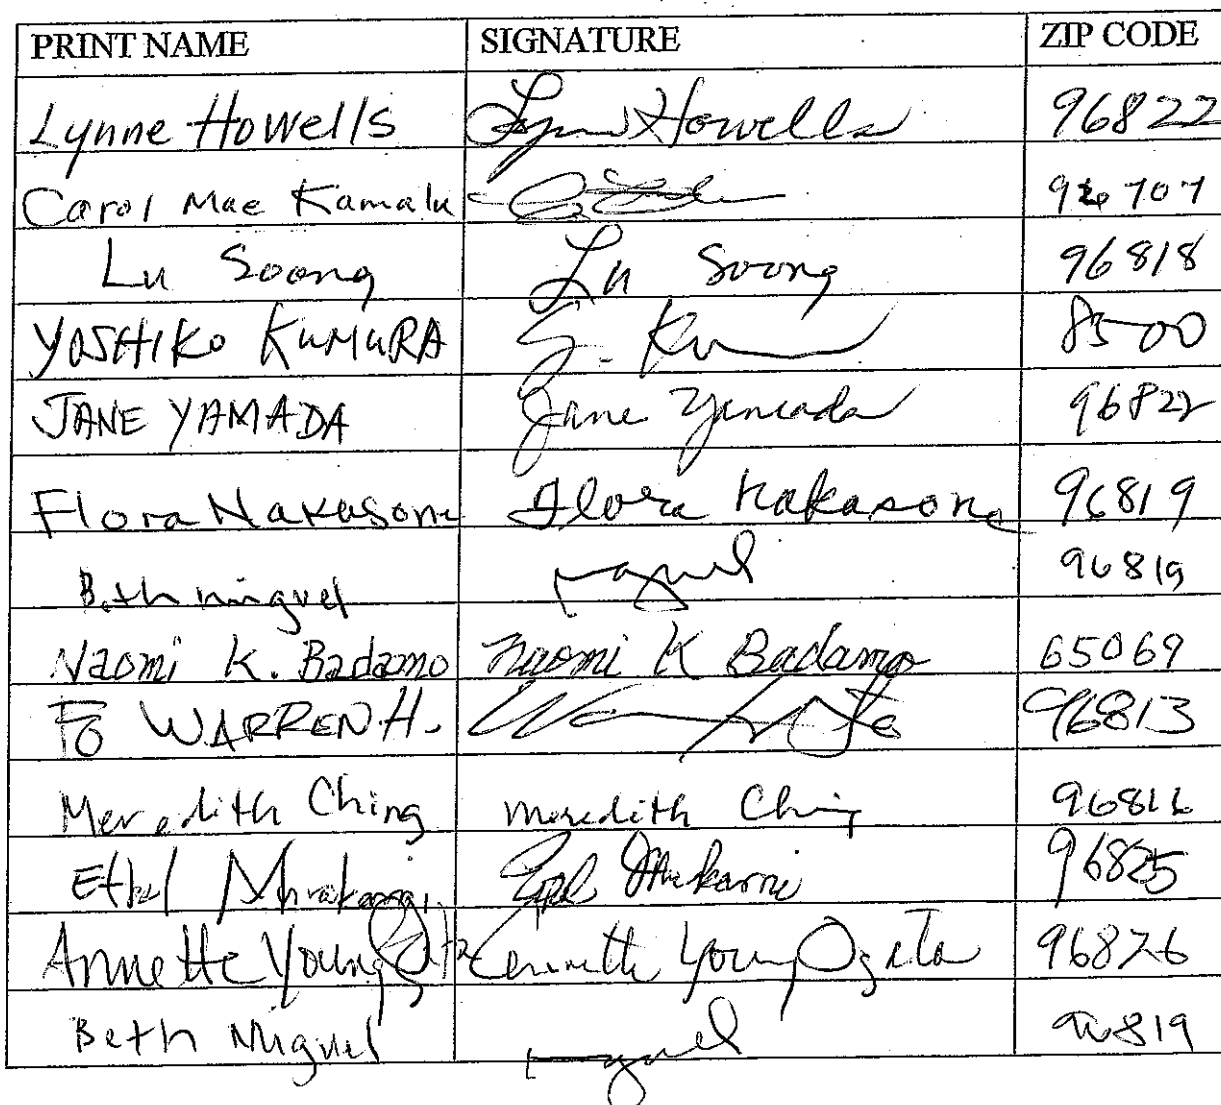 PRINT NAME SIGNATURE ZIP CODE
Lynne Howells Lynn Howells 96822
Carol Mae Kamalu 96707
Lu Soong Lu Soong 96818
YOSHIKO KUMURA Y. 8500
JANE YAMADA Jane Yamada 96822
Flora Nakasone Flora Nakasone 96819
Beth Miguel 96819
Naomi K. Badamo Naomi K Badamo 65069
FO WARREN H. 96813
Meredith Ching Meredith Ching 96816
Ethel Murakami Ethel Murakami 96825
Annette Young Ogata Annette Young Ogata 96826
Beth Miguel 96819